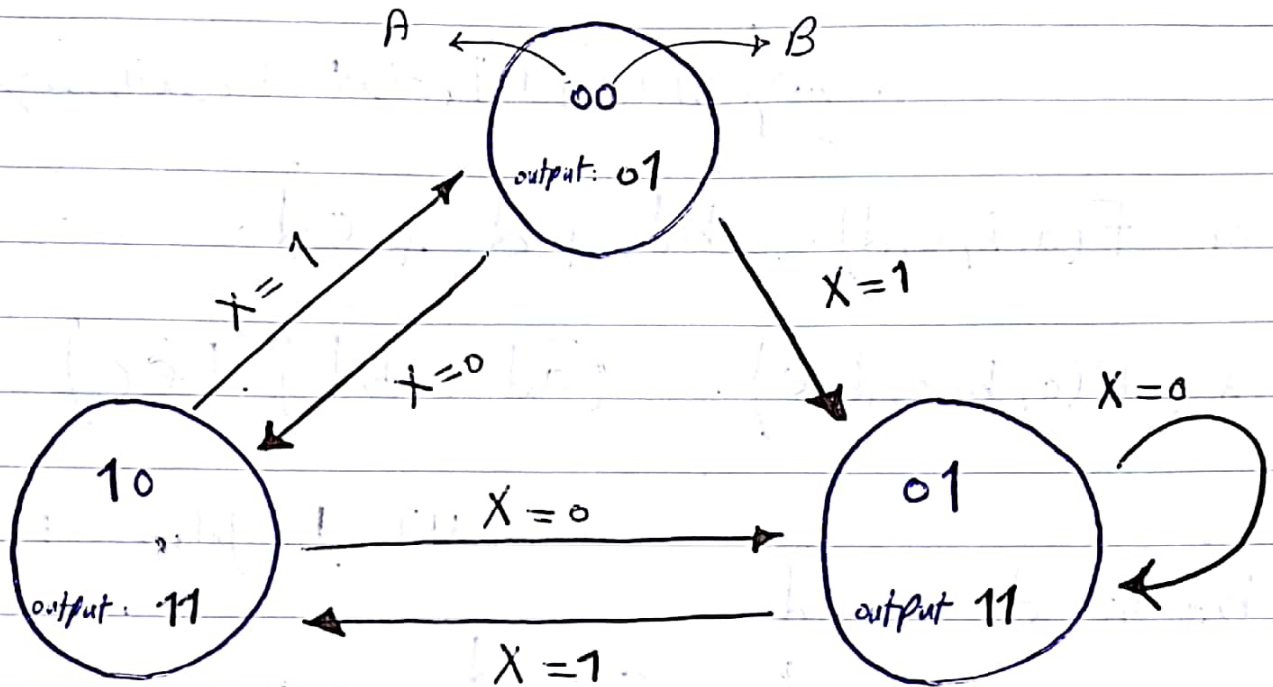 A B
00
output: 01
X=1
X=0
X=1
X=0
10
output: 11
X=0
X=1
01
output 11